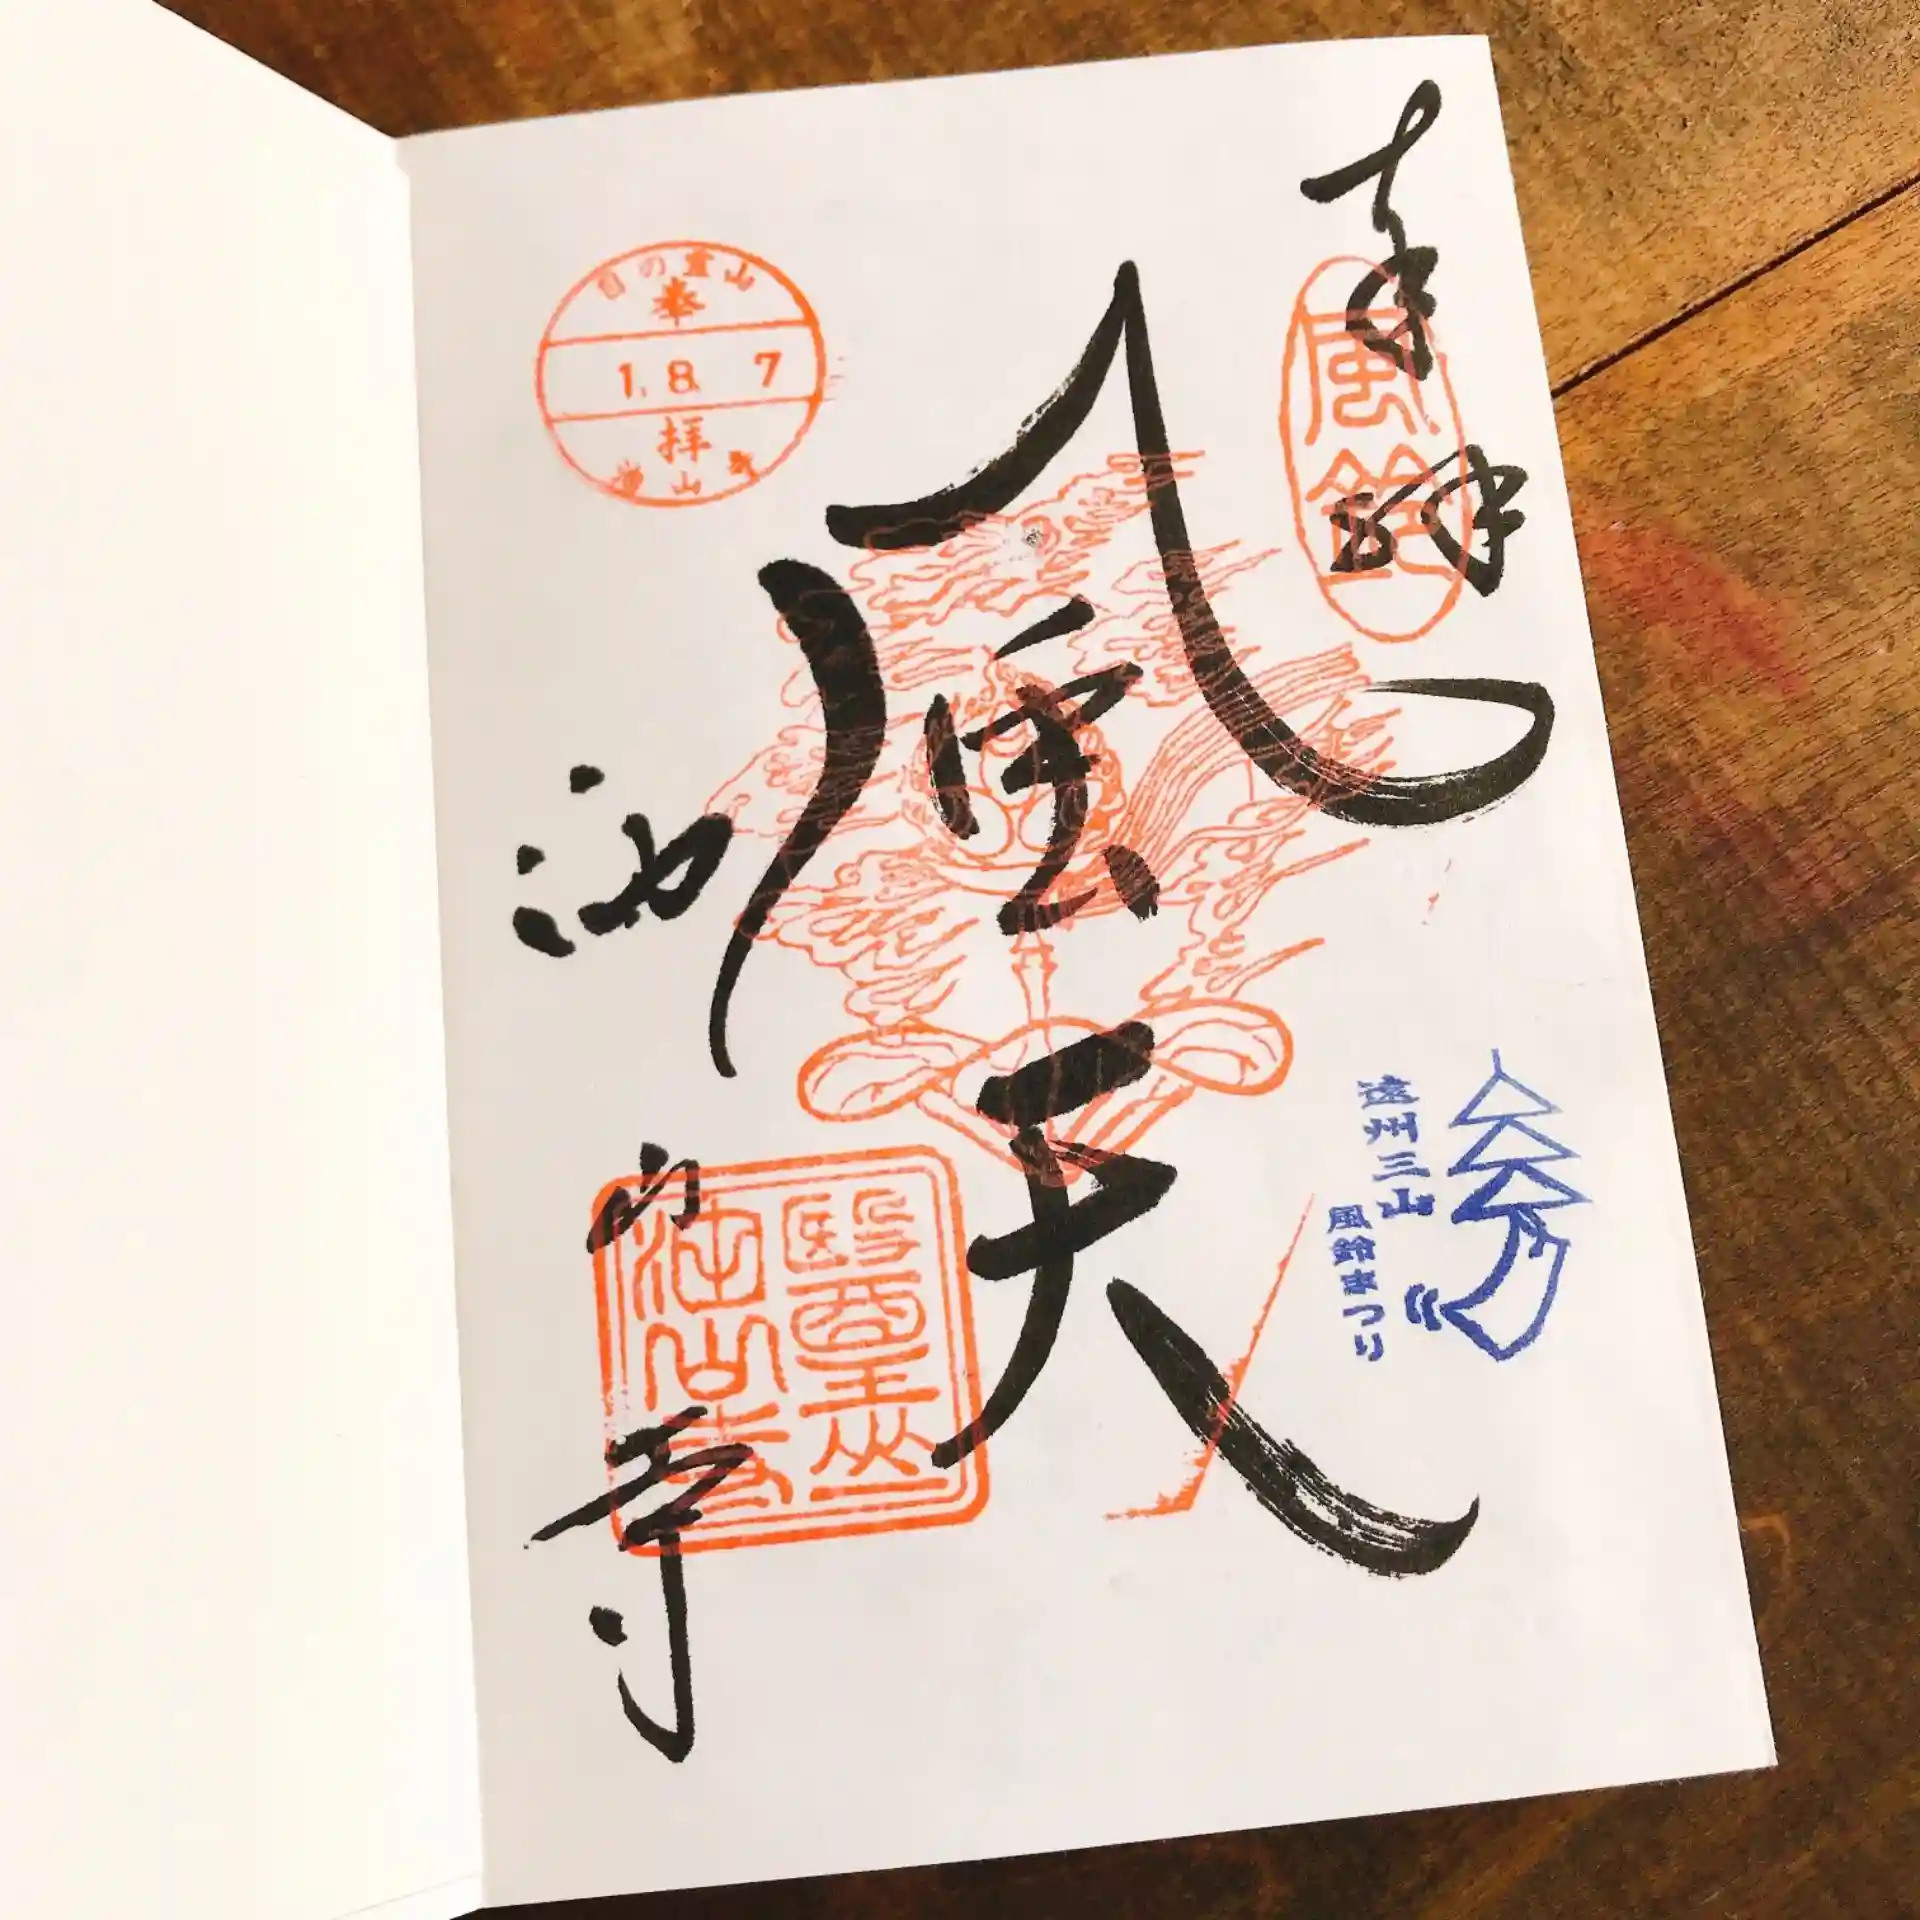 奉拝
風鈴
風天
油山寺
目の霊山
奉
1. 8. 7
拝
油山寺
醫王山
油山寺
遠州三山
風鈴まつり